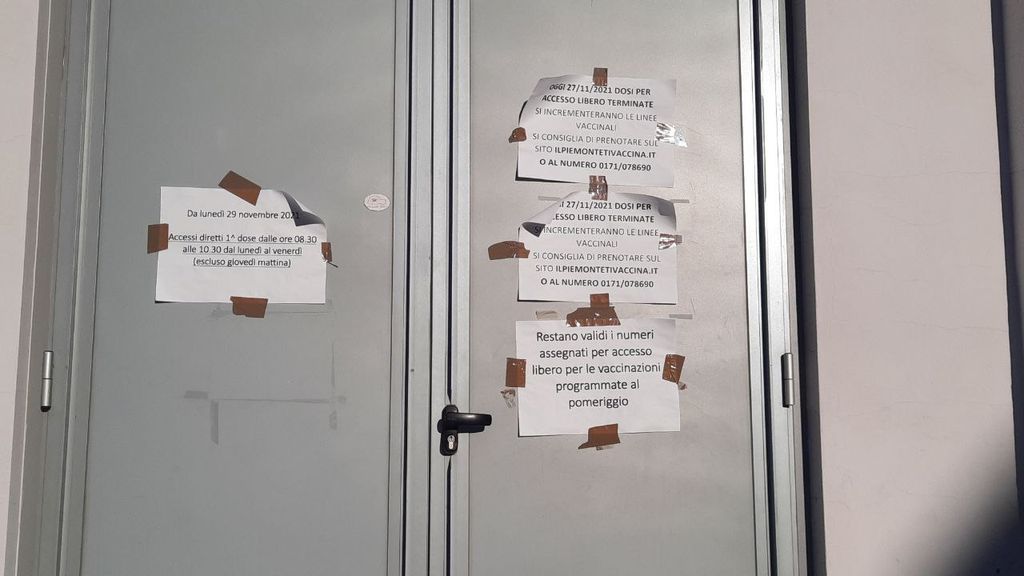 Da lunedì 29 novembre 2021
Accessi diretti 1^ dose dalle ore 08.30
alle 10.30 dal lunedì al venerdì
(escluso giovedì mattina)
OGGI 27/11/2021 DOSI PER
ACCESSO LIBERO TERMINATE
SI INCREMENTERANNO LE LINEE
VACCINALI
SI CONSIGLIA DI PRENOTARE SUL
SITO ILPIEMONTETIVACCINA.IT
O AL NUMERO 0171/078690
27/11/2021 DOSI PER
LIBERO TERMINATE
INCREMENTERANNO LE LINEE
VACCINALI
SI CONSIGLIA DI PRENOTARE SUL
SITO ILPIEMONTETIVACCINA.IT
O AL NUMERO 0171/078690
Restano validi i numeri
assegnati per accesso
libero per le vaccinazioni
programmate al
pomeriggio